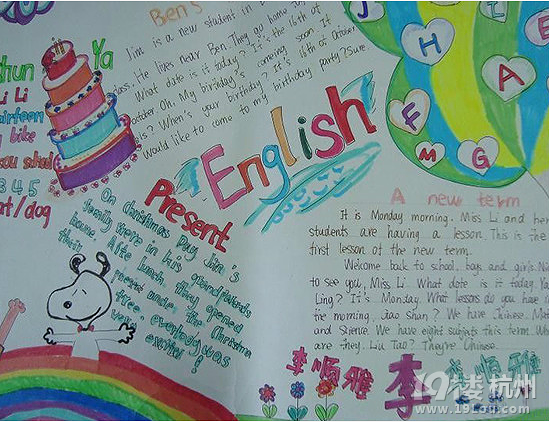 Ben's
Jim is a new student in
class. He lives near Ben. They go home
What date is it today? It's the 16th of
October. Oh, My birthday's comering soon. It
is? When's your birthday? It's 18th of October.
Would like to come to my birthday party? Sure.
hun Ya
Li Li
bike
3 4 5
art/dog
J
H I E
F A
M G
English
Present
On Christmas Day Jim's
family were in his grandparents
home. Afte lunch, they opened
their present under the Christma
tree. everybody was
very excited!
A new term
It is Monday morning. Miss Li and her
students are having a lesson. This is the
first lesson of the new term.
Welcome back to school, boys and girls. Ni
to see you, Miss Li. What date is it today, Ya
Ling? It's Monday. What lessons do you have
the morning, Gao Shan? We have Chinese. Mat
and Science. We have eight subjects this term. Wh
are they, Liu Tao? They're Chinese.
李顺雅
李 李顺雅
19楼 杭州
www.19lou.com